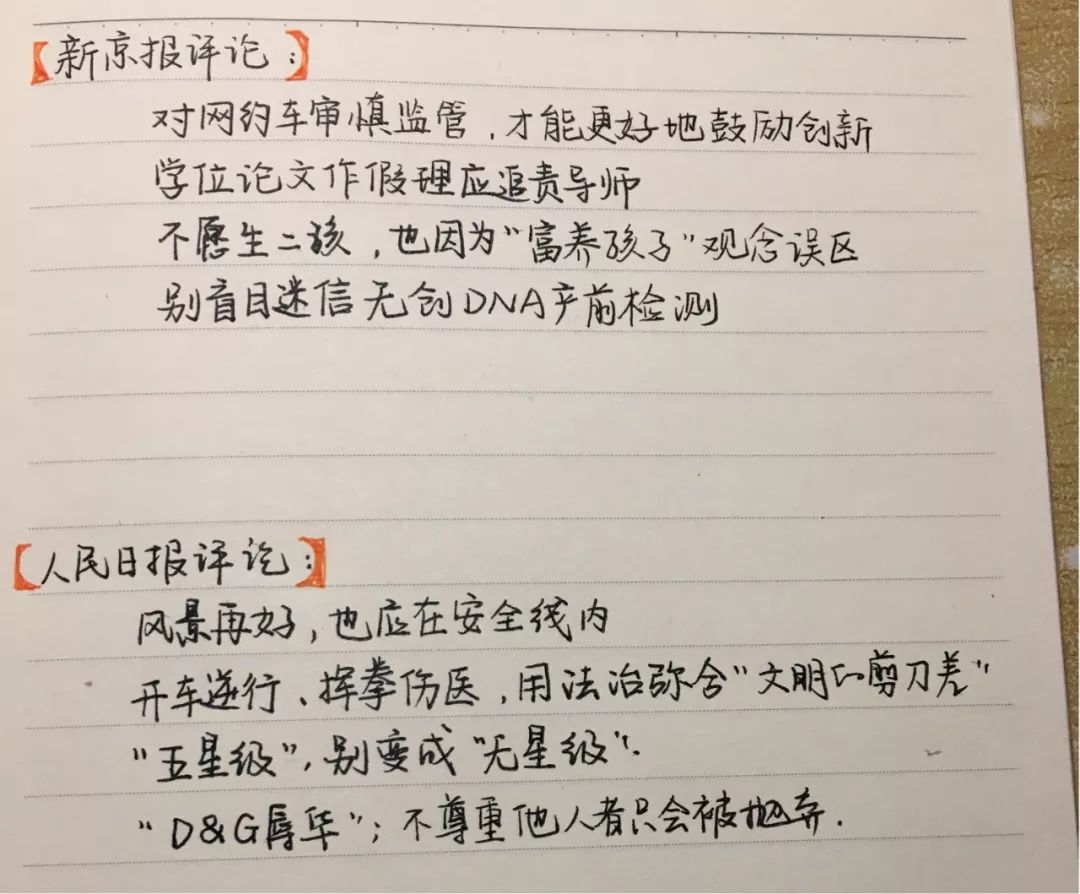 【新京报评论:】
对网约车审慎监管,才能更好地鼓励创新
学位论文作假理应追责导师
不愿生二孩,也因为“富养孩子”观念误区
别盲目迷信无创DNA产前检测
【人民日报评论:】
风景再好,也应在安全线内
开车逆行、挥拳伤医,用法治弥合“文明的剪刀差”
“五星级”,别变成“无星级”.
“D&G辱华”;不尊重他人者只会被抛弃.